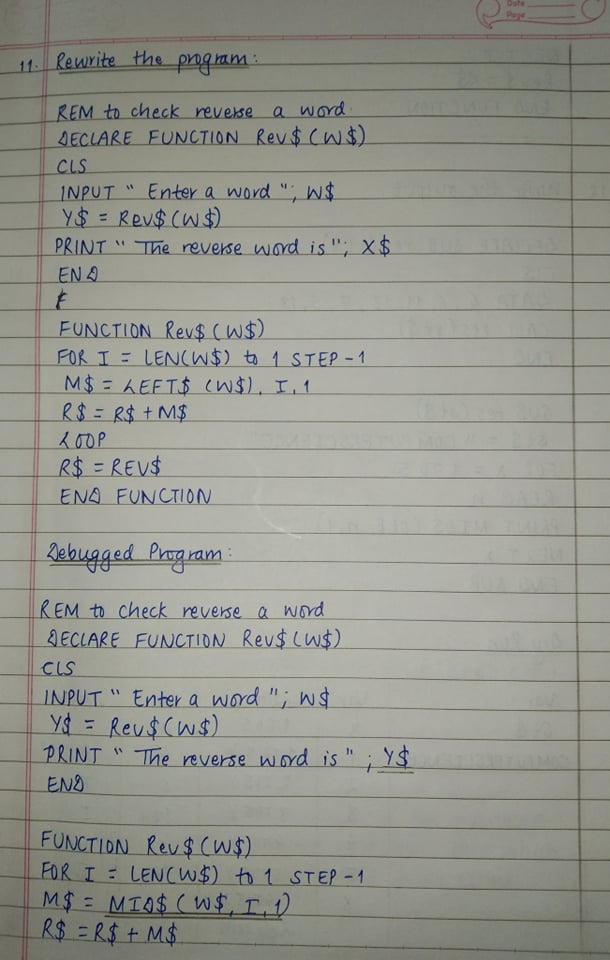 Date
Page
11. Rewrite the program:
REM to check reverse a word.
DECLARE FUNCTION Rev$ (W$)
CLS
INPUT " Enter a word "; W$
Y$ = Rev$ (W$)
PRINT " The reverse word is "; X$
END
FUNCTION Rev$ (W$)
FOR I = LEN(W$) to 1 STEP -1
M$ = LEFT$ (W$), I, 1
R$ = R$ + M$
LOOP
R$ = REV$
END FUNCTION
Debugged Program:
REM to check reverse a word
DECLARE FUNCTION Rev$ (W$)
CLS
INPUT " Enter a word "; W$
Y$ = Rev$ (W$)
PRINT " The reverse word is " ; Y$
END
FUNCTION Rev$ (W$)
FOR I = LEN(W$) to 1 STEP -1
M$ = MID$ ( W$, I, 1)
R$ = R$ + M$